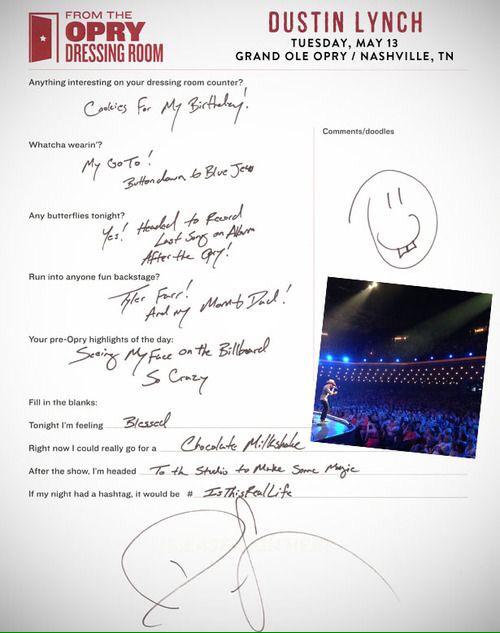 FROM THE
OPRY
DRESSING ROOM
DUSTIN LYNCH
TUESDAY, MAY 13
GRAND OLE OPRY / NASHVILLE, TN
Anything interesting on your dressing room counter?
Cookies For My Birthday!
Whatcha wearin'?
My GoTo!
Button down & Blue Jeans
Any butterflies tonight?
Yes! Headed to Record
Last Song on Album
After the Opry!
Run into anyone fun backstage?
Tyler Farr!
And my Mom & Dad!
Your pre-Opry highlights of the day:
Seeing My Face on the Billboard
So Crazy
Fill in the blanks:
Tonight I'm feeling Blessed
Right now I could really go for a Chocolate Milkshake
After the show, I'm headed To the Studio to Make Some Magic
If my night had a hashtag, it would be # IsThisRealLife
Comments/doodles